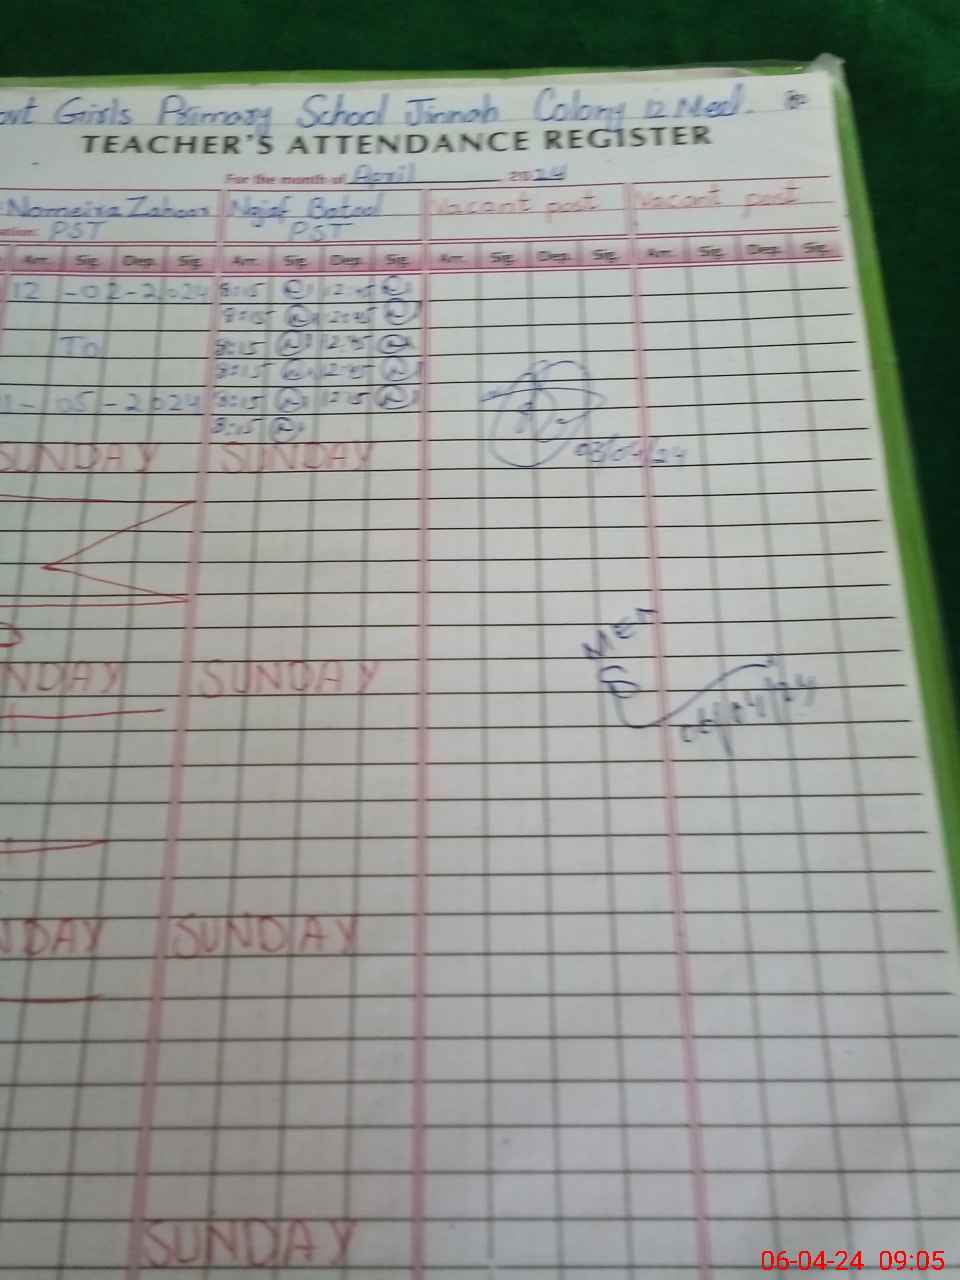 ovt Girls Primary School Jinnah Colony 12 Med.
TEACHER'S ATTENDANCE REGISTER
For the month of April 2024
Nomeira Zahoor Najaf Batool Vacant post Vacant post
PST PST
Arr. Sig. Dep. Sig. Arr. Sig. Dep. Sig. Arr. Sig. Dep. Sig. Arr. Sig. Dep. Sig.
12 -02-2024 8:15 12:45
8:15 12:45
To 8:15 12:45
8:15 12:45
1-05-2024 8:15 12:15
8:15
SUNDAY SUNDAY
03/04/24
MEA
NDAY SUNDAY
06/04/24
NDAY SUNDAY
SUNDAY
06-04-24 09:05